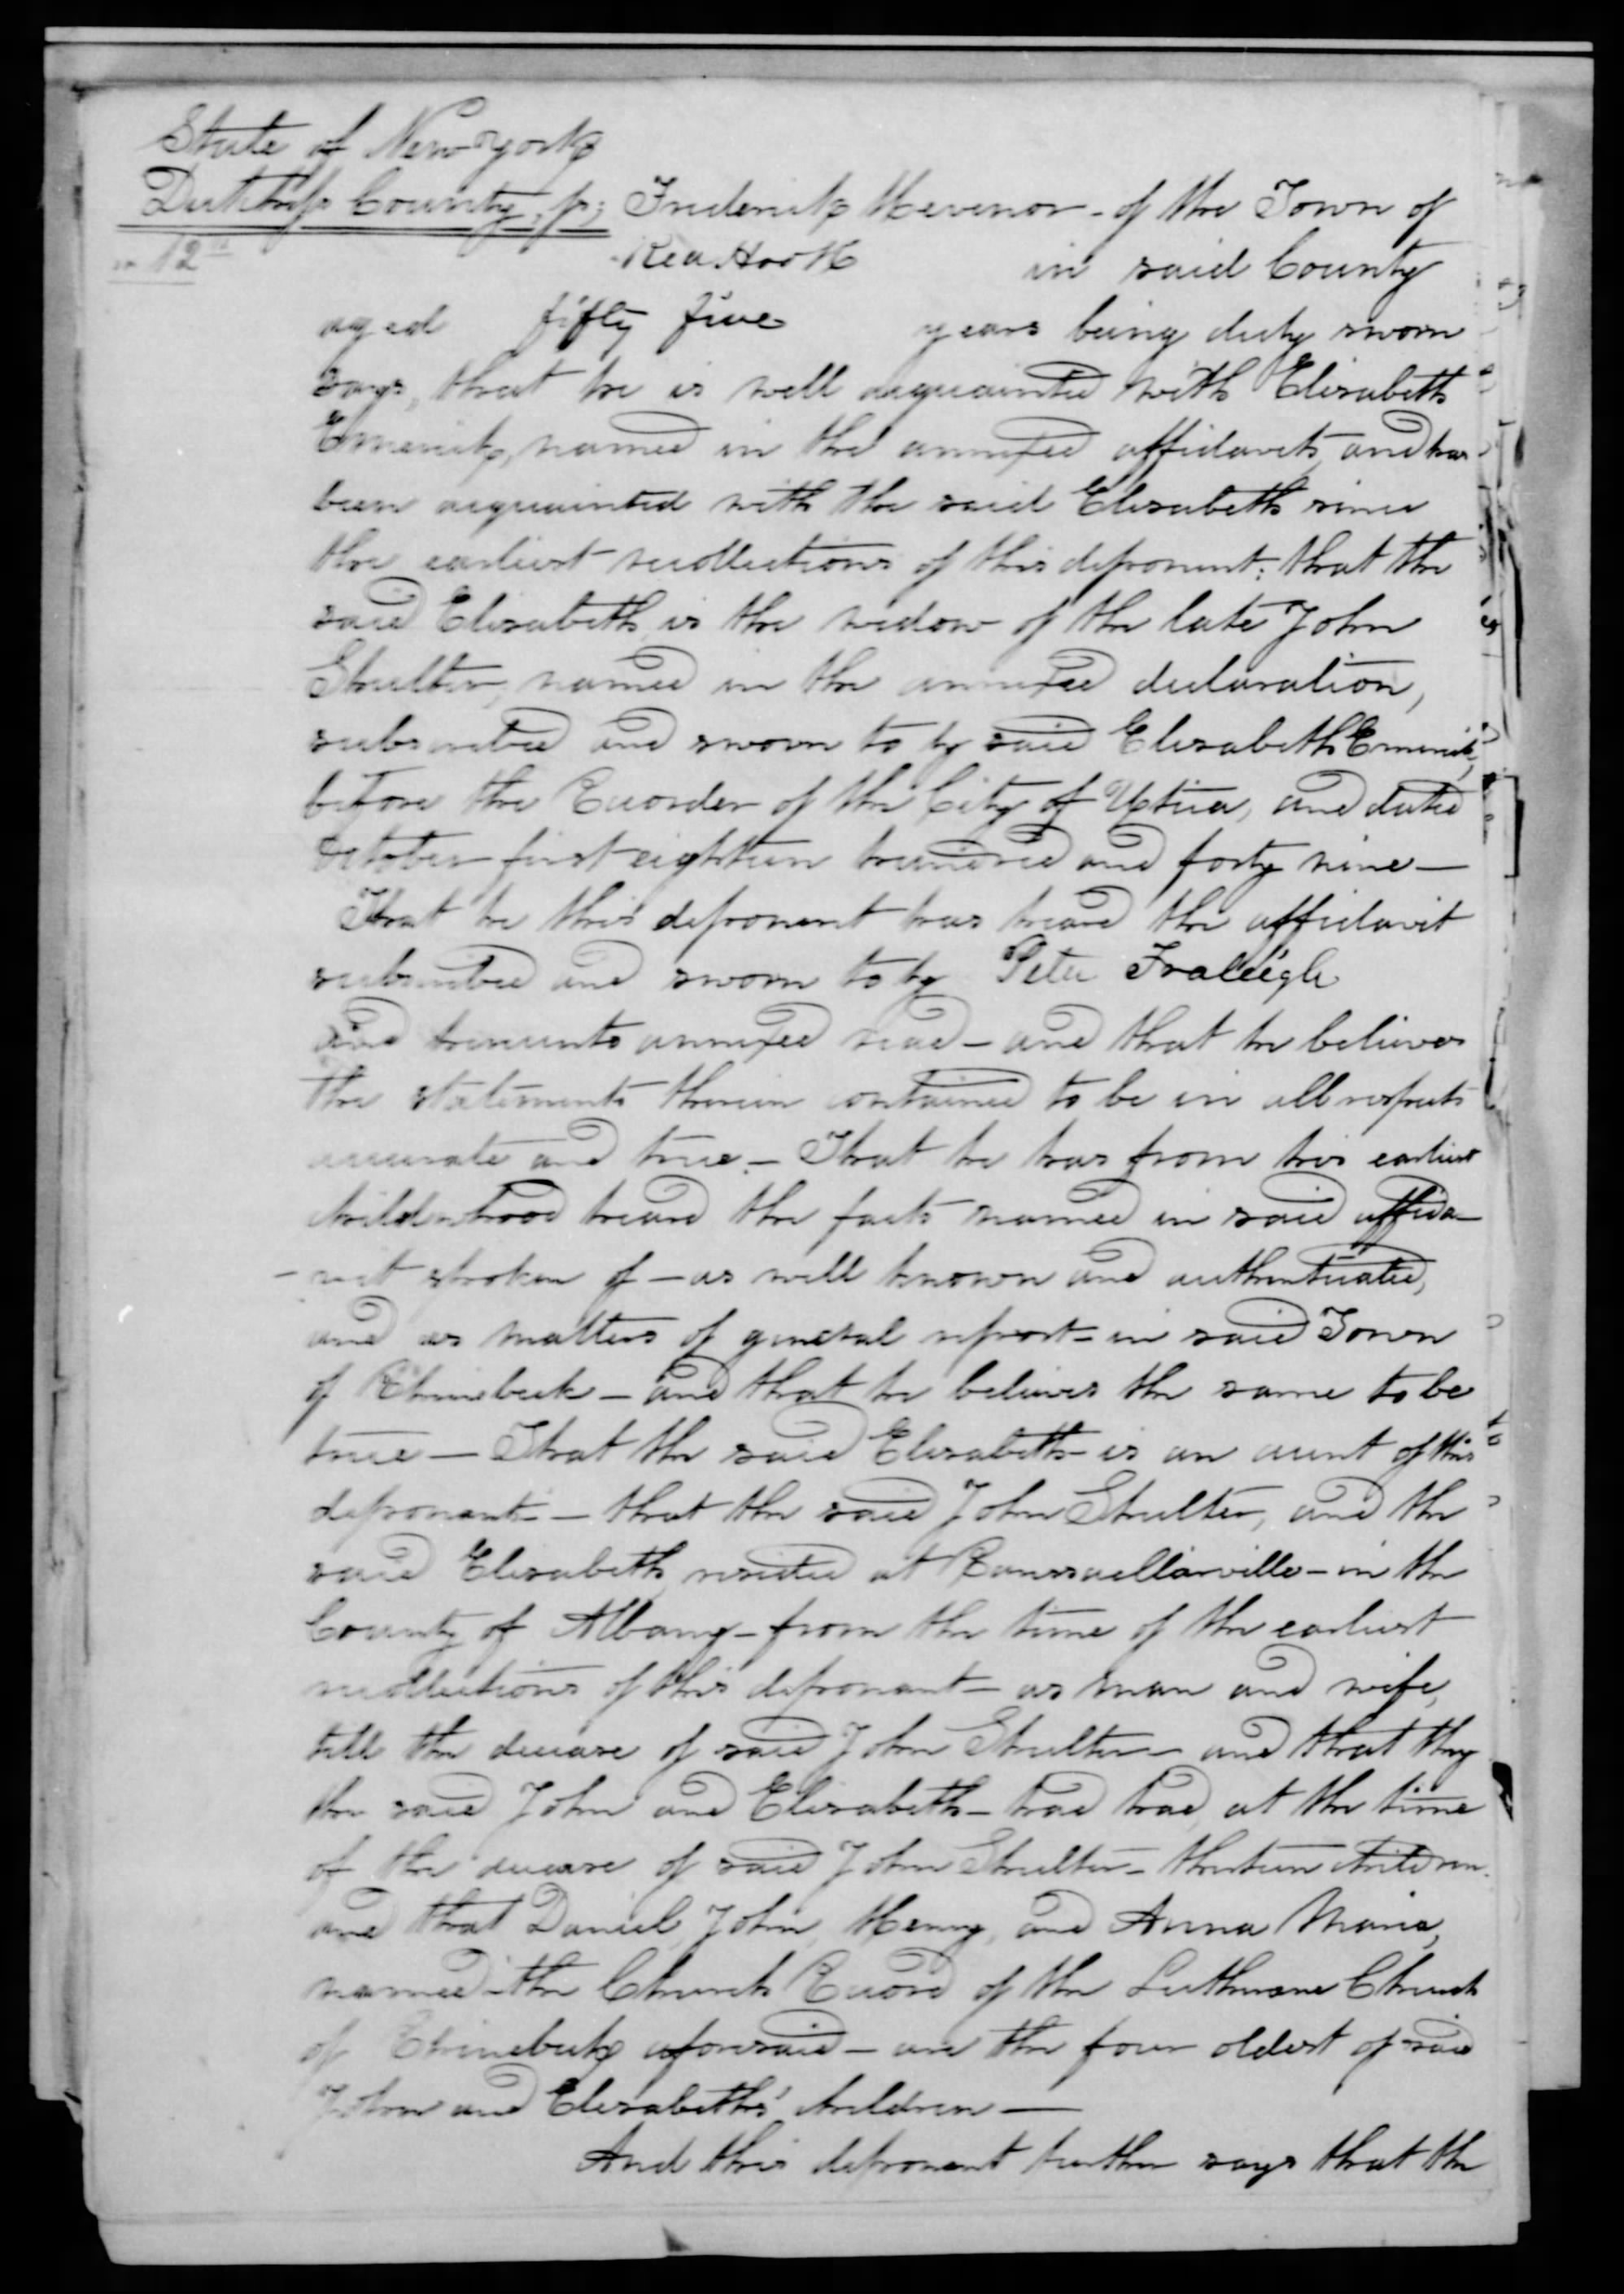 State of New York
Dutchess County, ss; Frederick Hevenor - of the Town of
12th Red Hook in said County
aged fifty five years being duly sworn
says, that he is well acquainted with Elisabeth
Emerick, named in the annexed affidavits, and has
been acquainted with the said Elisabeth since
the earliest recollections of this deponent: that the
said Elisabeth is the widow of the late John
Shulter, named in the annexed declaration,
subscribed and sworn to by said Elisabeth Emerick,
before the Recorder of the City of Utica, and dated
October first eighteen hundred and forty nine —
That he this deponent has heard the affidavit
subscribed and sworn to by Peter Fraleigh
and hereunto annexed read - and that he believes
the statements therein contained to be in all respects
accurate and true. - That he has from his earliest
childhood heard the facts named in said affida-
-vit spoken of - as well known and authenticated,
and as matters of general report - in said Town
of Rhinebeck - and that he believes the same to be
true - That the said Elisabeth is an aunt of this
deponent - that the said John Shulter, and the
said Elisabeth, resided at Ranssaellarville - in the
County of Albany - from the time of the earliest
recollections of this deponent - as man and wife,
till the decease of said John Shulter - and that they
the said John and Elisabeth - had had, at the time
of the decease of said John Shulter - thirteen children.
and that Daniel, John, Henry, and Anna Maria,
named the Church Record of the Lutheran Church
of Rhinebeck aforesaid - are the four oldest of said
John and Elisabeth's children —
And this deponent further says that the